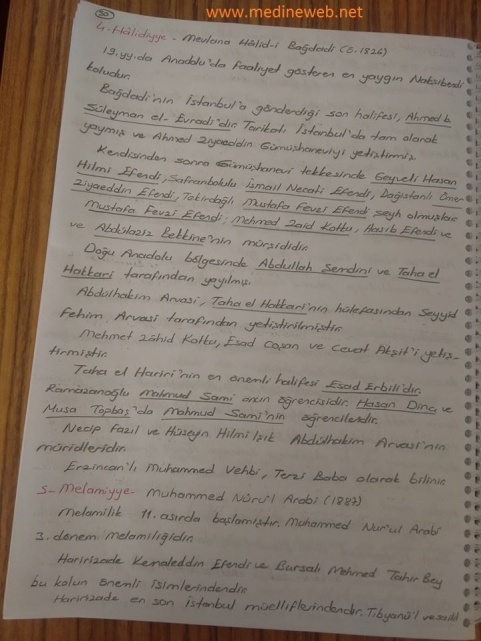 www.medineweb.net
50
4-Hâlidiyye - Mevlana Hâlid-i Bağdadi (ö.1826)
19.yy.da Anadolu'da faaliyet gösteren en yaygın Nakşibendi
koludur.
Bağdadi'nin İstanbul'a gönderdiği son halifesi, Ahmed b.
Süleyman el-Evradi'dir. Tarikatı İstanbul'da tam olarak
yaymış ve Ahmed Ziyaeddin Gümüşhaneviyi yetiştirmiş.
Kendisinden sonra Gümüşhanevi tekkesinde Geyveli Hasan
Hilmi Efendi, Safranbolulu İsmail Necati Efendi, Dağıstanlı Ömer
Ziyaeddin Efendi, Tekirdağlı Mustafa Fevzi Efendi şeyh olmuşlar
Mustafa Fevzi Efendi; Mehmed Zaid Kotku, Hasib Efendi ve
ve Abdülaziz Bekkine'nin mürşididir.
Doğu Anadolu bölgesinde Abdullah Şemdini ve Taha el
Hakkari tarafından yayılmış.
Abdülhakim Arvasi, Taha el Hakkari'nin hülefasından Seyyid
Fehim Arvasi tarafından yetiştirilmiştir.
Mehmet Zâhid Kotku, Esad Coşan ve Cevat Akşit'i yetiş-
tirmiştir.
Taha el Hariri'nin en önemli halifesi Esad Erbili'dir.
Ramazanoğlu Mahmud Sami onun öğrencisidir. Hasan Dinç ve
Musa Topbaş'da Mahmud Sami'nin öğrencileridir.
Necip Fazıl ve Hüseyin Hilmi Işık Abdülhakim Arvasi'nin
müridleridir.
Erzincan'lı Muhammed Vehbi, Terzi Baba olarak bilinir.
5-Melamiyye- Muhammed Nûru'l Arabi (1887)
Melamilik 11. asırda başlamıştır. Muhammed Nur'ul Arabi
3. dönem Melamiliğidir.
Haririzade Kemaleddin Efendi ve Bursalı Mehmed Tahir Bey
bu kolun önemli isimlerindendir.
Haririzade en son İstanbul müelliflerindendir. Tibyanü'l